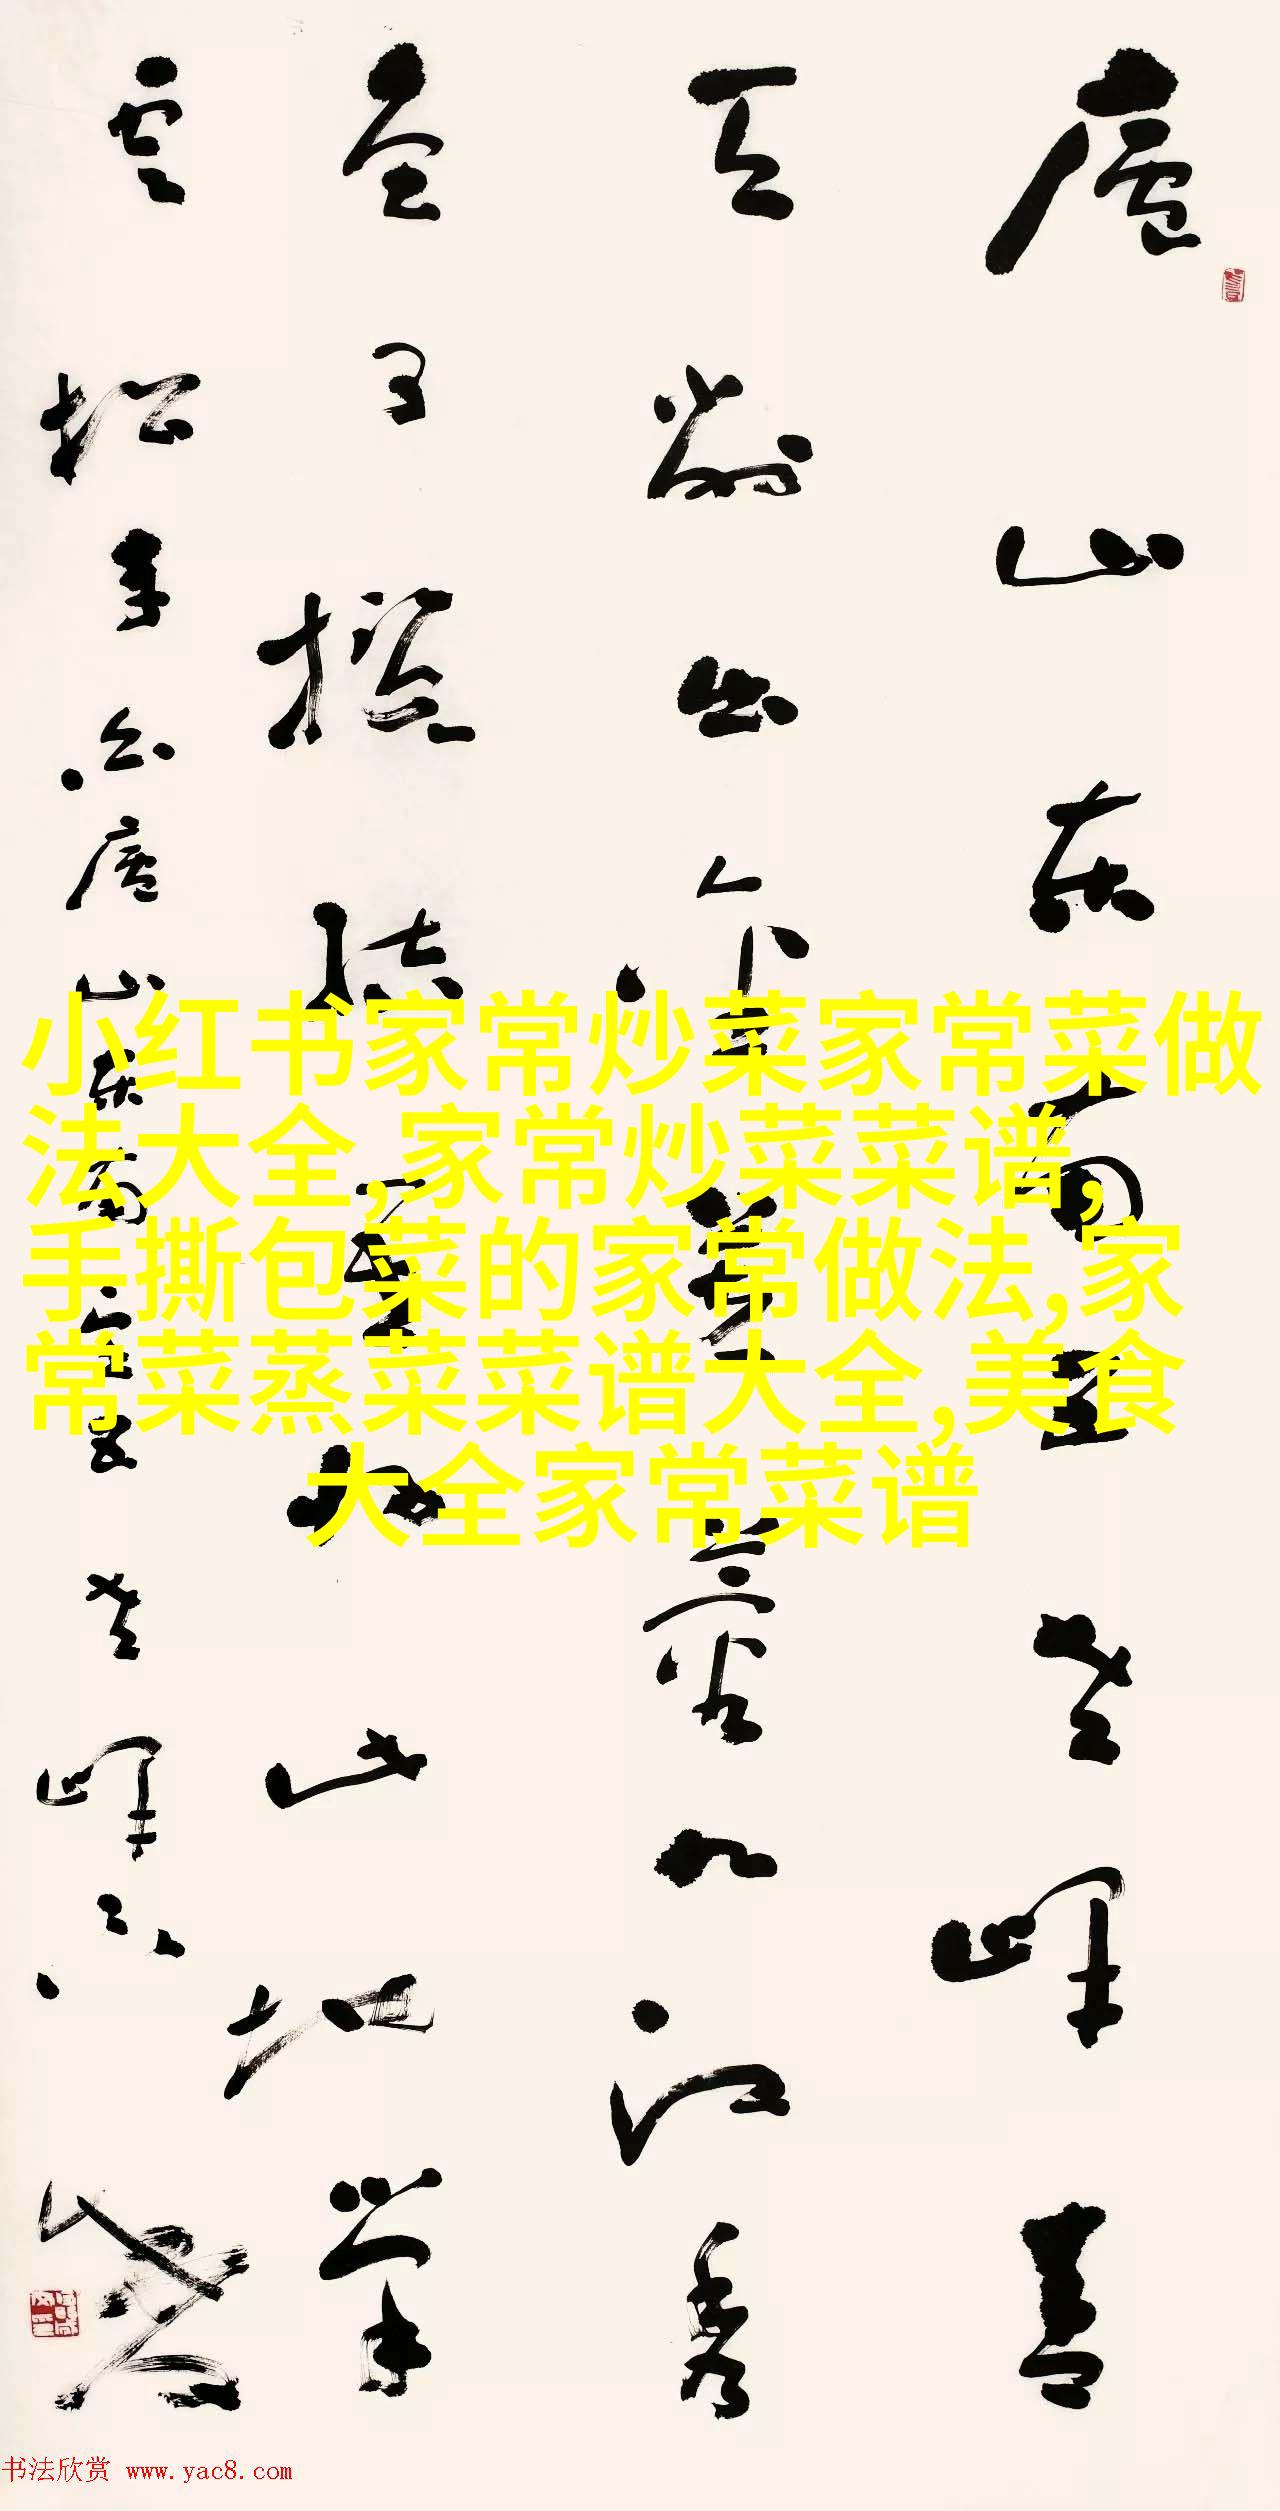 廬山东南五老峰青
天削出金芙蓉九江秀
色可攬结吾将此地巢
云松李白廬山东南望五老峰
小红书家常炒菜家常菜做
法大全,家常炒菜菜谱,
手撕包菜的家常做法,家
常菜蒸菜菜谱大全,美食
大全家常菜谱
书法欣赏 www.yac8.com